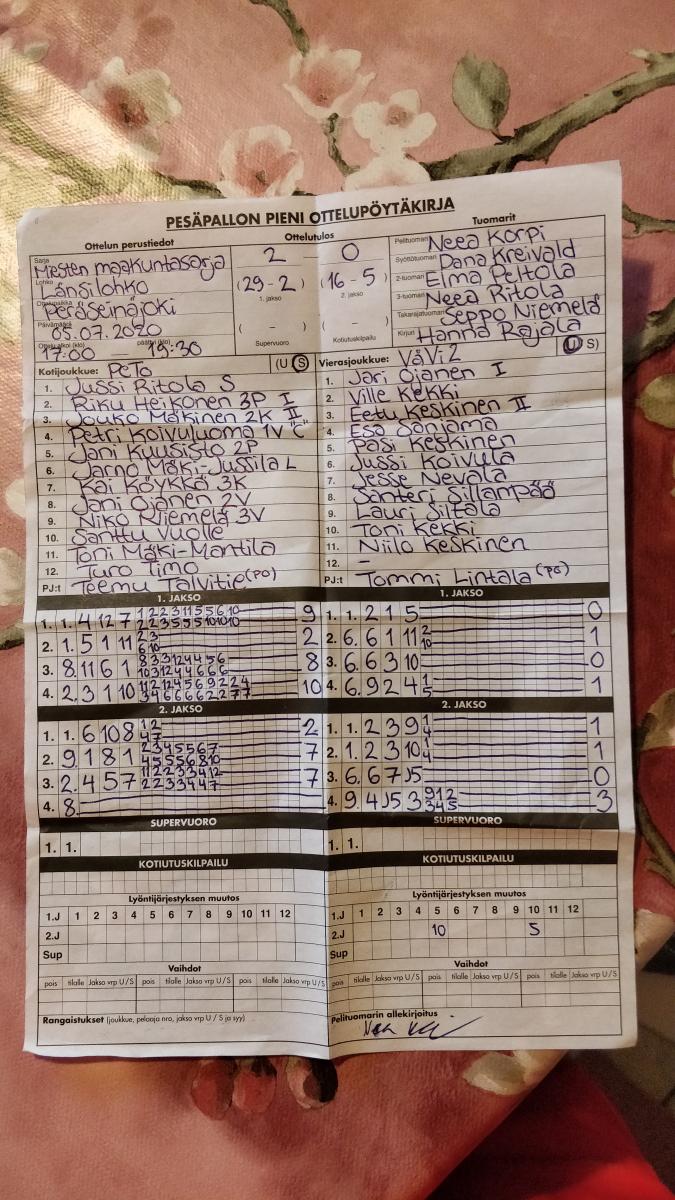 PESÄPALLON PIENI OTTELUPÖYTÄKIRJA
Ottelun perustiedot
Sarja
Miesten maakuntasarja
Lohko
Länsilohko
Ottelupaikka
Peräseinäjoki
Päivämäärä
05.07.2020
Ottelu alkoi (klo) päättyi (klo)
17:00 — 19:30
Ottelutulos
2 — 0
(29-2) (16-5)
1. jakso 2. jakso
( - ) ( - )
Supervuoro Kotiutuskilpailu
Tuomarit
Pelituomari Neea Korpi
Syöttötuomari Dana Kreivald
2-tuomari Elma Peltola
3-tuomari Neea Ritola
Takarajatuomari Seppo Niemelä
Kirjuri Hanna Rajala
Kotijoukkue: PeTo (U S)
1. Jussi Ritola S
2. Riku Heikonen 3P I
3. Jouko Mäkinen 2K II
4. Petri Koivuluoma 1V "C"
5. Jani Kuusisto 2P
6. Jarno Mäki-Jussila L
7. Kai Köykkä 3K
8. Jani Ojanen 2V
9. Niko Niemelä 3V
10. Santtu Vuolle
11. Toni Mäki-Mantila
12. Turo Timo
PJ:t Teemu Talvitie (PO)
Vierasjoukkue: VäVi 2 (U S)
1. Jari Ojanen I
2. Ville Kekki
3. Eetu Keskinen II
4. Esa Sanjama
5. Pasi Keskinen
6. Jussi Koivula
7. Jesse Nevala
8. Santeri Sillanpää
9. Lauri Siltala
10. Toni Kekki
11. Niilo Keskinen
12. —
PJ:t Tommi Lintala (PO)
1. JAKSO
1. 1. 4 12 7 1 2 2 3 11 5 5 6 10 9
2 2 3 5 5 5 10 10 10
2. 1. 5 11 11 2 3 2
6 10
3. 8. 11 6 1 8 3 3 12 4 4 5 6 8
10 3 12 4 4 6 6 6
4. 2. 3 1 10 11 12 12 4 5 6 9 2 2 4 10
3 4 6 6 6 6 2 2 7 7
1. JAKSO
1. 1. 2 1 5 0
2. 6. 6 11 11 2 1
10
3. 6. 6 3 10 0
4. 6. 9 2 4 1 1
5
2. JAKSO
1. 1. 6 10 8 1 2 2
4 7
2. 9 1 8 1 2 3 4 5 5 6 7 7
4 5 5 5 6 8 10
3. 2. 4 5 7 11 2 2 3 3 4 12 7
2 2 3 3 4 4 7
4. 8.
2. JAKSO
1. 1. 2 3 9 1 1
4
2. 1. 2 3 10 1 1
4
3. 6. 6 7 J5 0
4. 9 4 J5 3 9 1 2 3
3 4 5
SUPERVUORO
1. 1.
SUPERVUORO
1. 1.
KOTIUTUSKILPAILU
KOTIUTUSKILPAILU
Lyöntijärjestyksen muutos
1.J 1 2 3 4 5 6 7 8 9 10 11 12
2.J
Sup
Lyöntijärjestyksen muutos
1.J 1 2 3 4 5 6 7 8 9 10 11 12
2.J 10 5
Sup
Vaihdot
pois tilalle Jakso vrp U/S pois tilalle Jakso vrp U/S pois tilalle Jakso vrp U/S
Vaihdot
pois tilalle Jakso vrp U/S pois tilalle Jakso vrp U/S pois tilalle Jakso vrp U/S
Rangaistukset (joukkue, pelaaja nro, jakso vrp U / S ja syy)
Pelituomarin allekirjoitus